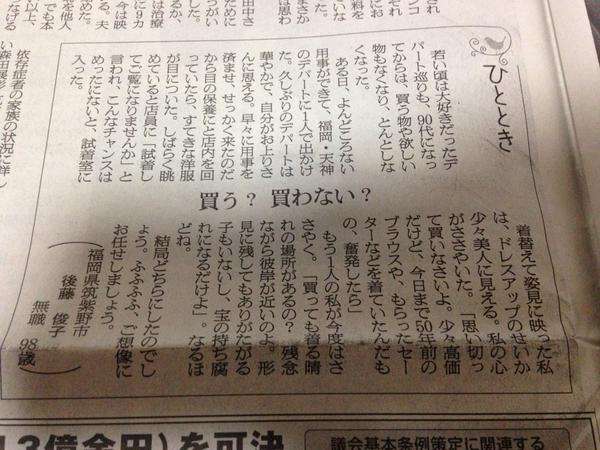 ひととき
若い頃は大好きだったデ
パート巡りも、90代になっ
てからは、買う物や欲しい
物もなくなり、とんとしな
くなった。
ある日、よんどころない
用事ができて、福岡・天神
のデパートに1人で出かけ
た。久しぶりのデパートは
華やかで、自分がお上りさ
んに思える。早々に用事を
済ませ、せっかく来たのだ
から目の保養にと店内を回
っていたら、すてきな洋服
が目についた。しばらく眺
めていると店員に「試着し
てご覧になりませんか」と
言われ、こんなチャンスは
めったにないと、試着室に
入った。
買う？ 買わない？
着替えて姿見に映った私
は、ドレスアップのせいか
少々美人に見える。私の心
がささやいた。「思い切っ
て買いなさいよ。少々高価
だけど、今日まで50年前の
ブラウスや、もらったセー
ターなどを着ていたんだも
の、奮発したら」
もう1人の私が今度はさ
さやく。「買っても着る晴
れの場所があるの？ 残念
ながら彼岸が近いのよ。形
見に残してもありがたがる
子もいないし、宝の持ち腐
れになるだけよ」。なるほ
どね。
結局どちらにしたのでし
ょう。ふふふふ、ご想像に
お任せしましょう。
（福岡県筑紫野市
後藤 俊子
無職 98歳）
依存症者の家族の状況に詳し
を可決
議会基本条例策定に関連する